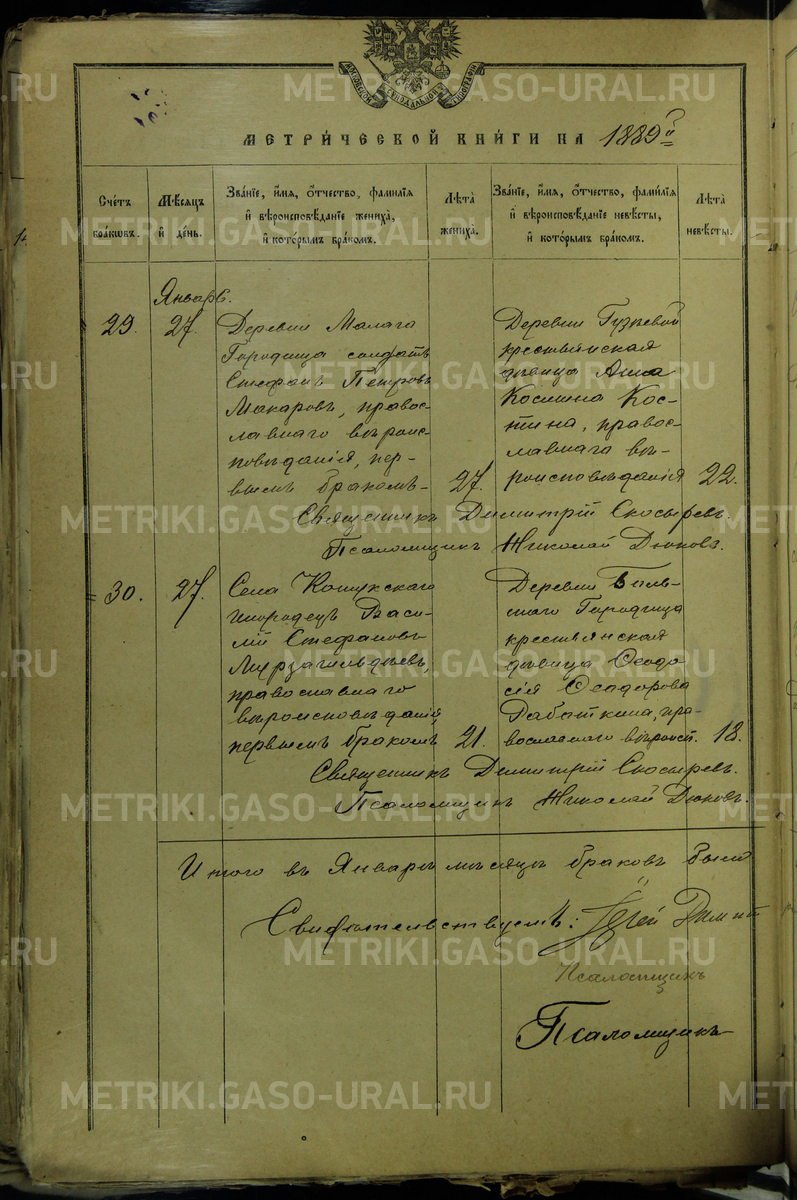 МЕТРИ́ЧЕСКОЙ КНИ́ГИ НА 1889й
Сче́тъ
бра́ковъ.
Мѣ́сяцъ
и҆ де́нь.
Зва́нїе, и҆́мѧ, ѻ҆́тчество, фами́лїѧ
и҆ вѣроисповѣ́данїе жениха̀,
и҆ кото́рымъ бра́комъ.
Лѣ́та
жениха̀.
Зва́нїе, и҆́мѧ, ѻ҆́тчество, фами́лїѧ
и҆ вѣроисповѣ́данїе невѣ́сты,
и҆ кото́рымъ бра́комъ.
Лѣ́та
невѣ́сты.
Январь.
29.
27.
Деревни Малаго
Городища солдатъ
Стефанъ Петровъ
Макаровъ, правос-
лавнаго вѣроис-
повѣданія, пер-
вымъ бракомъ-
27.
Деревни Гузѣевой
крестьянская
дѣвица Анна
Космина Кос-
тина, правос-
лавнаго вѣ-
роисповѣданія
22.
Священникъ Димитрій Скосыревъ.
Псаломщикъ Николай Дюковъ.
30.
27.
Села Кошукскаго
инородецъ Васи-
лій Стефановъ
Мурзагильдѣевъ,
православнаго
вѣроисповѣданія,
первымъ бракомъ
21.
Деревни Биль-
скаго Городища
крестьянская
дѣвица Ѳеодо-
сія Ѳеодорова
Работкина, пра-
вославнаго вѣроисп.
18.
Священникъ Димитрій Скосыревъ.
Псаломщикъ Николай Дюковъ.
Итого въ Январѣ мѣсяцѣ браковъ было
Свидѣтельствуемъ: Іерей Димит
Псаломщикъ
Псаломщикъ
METRIKI.GASO-URAL.RU